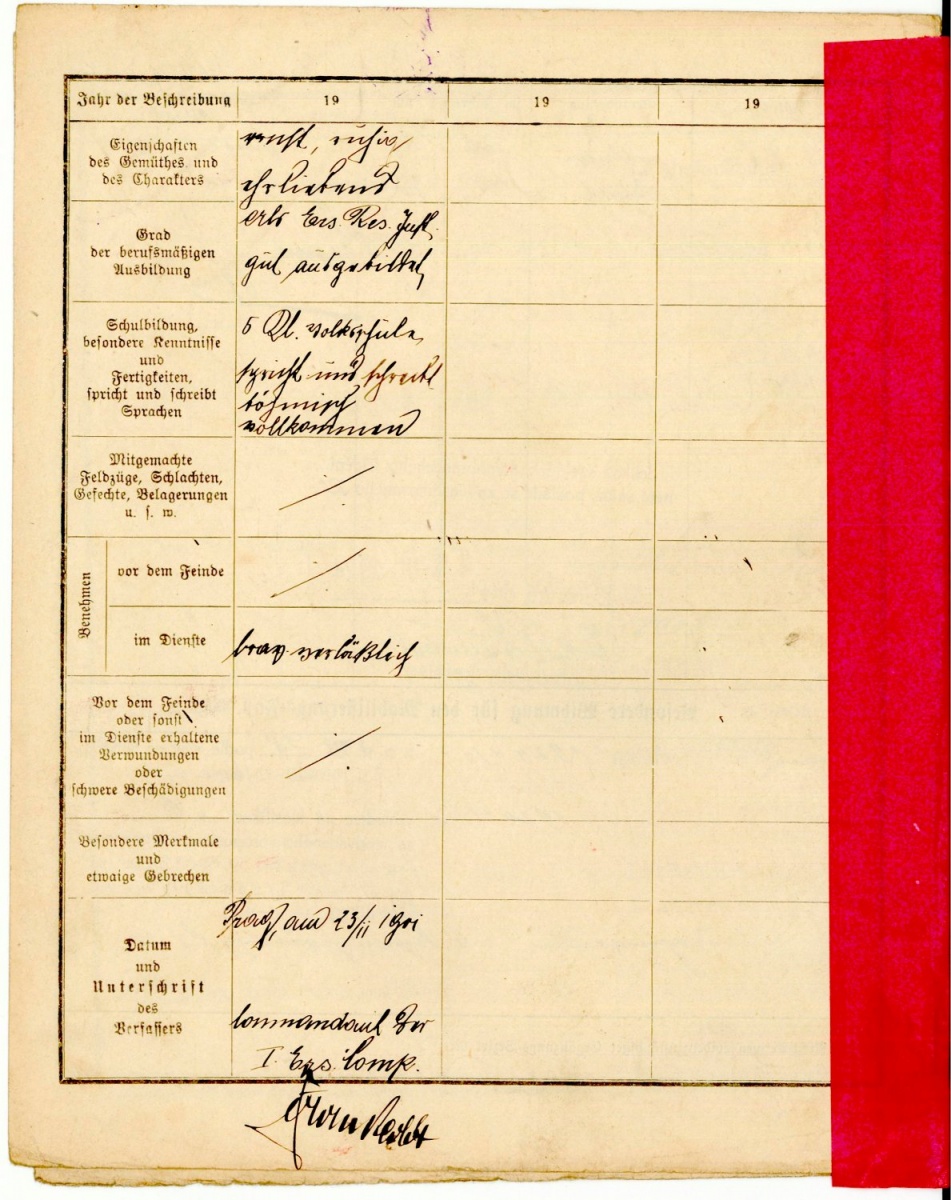 Jahr der Beschreibung 19 19 19
Eigenschaften
des Gemüthes und
des Charakters
ernst, ruhig
ehrliebend
Grad
der berufsmäßigen
Ausbildung
als Ers. Res. Inft.
gut ausgebildet
Schulbildung,
besondere Kenntnisse
und
Fertigkeiten,
spricht und schreibt
Sprachen
5 Kl. Volksschule
spricht und schreibt
böhmisch
vollkommen
Mitgemachte
Feldzüge, Schlachten,
Gefechte, Belagerungen
u. s. w.
Benehmen
vor dem Feinde
im Dienste
brav verläßlich
Vor dem Feinde
oder sonst
im Dienste erhaltene
Verwundungen
oder
schwere Beschädigungen
Besondere Merkmale
und
etwaige Gebrechen
Datum
und
Unterschrift
des
Verfassers
Prag, am 23/11 1901
Commandant der
I. Ers. Comp.